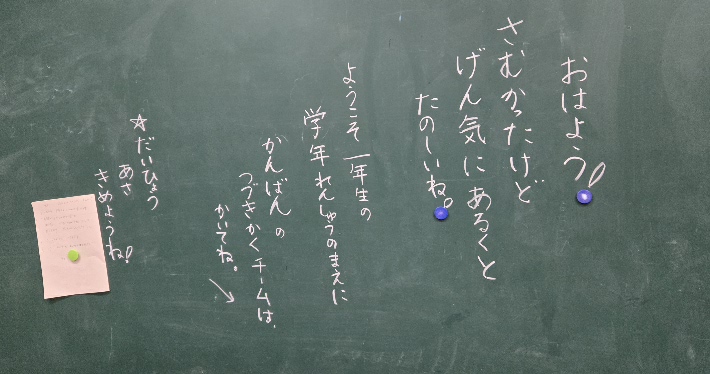 おはよう!
さむかったけど
げん気にあるくと
たのしいね!
ようこそ一年生の
学年れんしゅうのまえに
かんばんの
つづきかくチームは、
かいてね。
↘
☆だいひょう
あさ
きめようね!